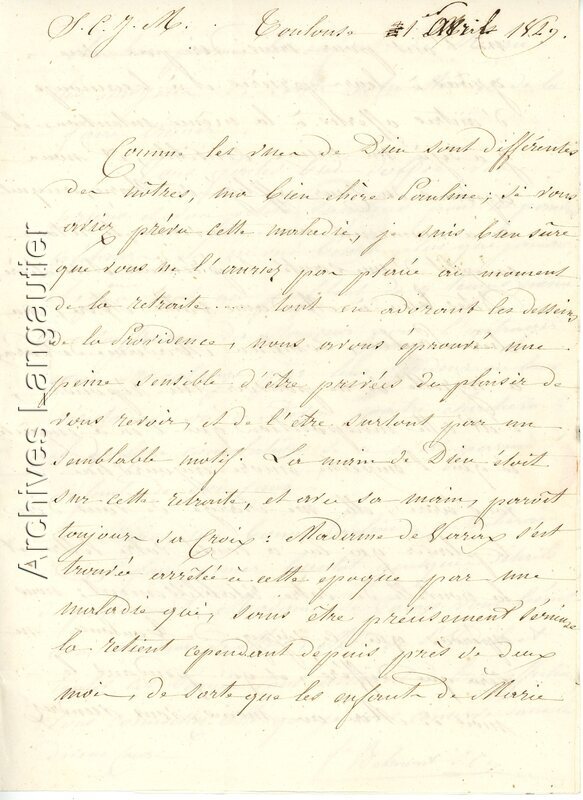 S. C. J. M. Toulouse 1er Avril 1849.
Comme les vues de Dieu sont différentes
des nôtres, ma bien chère Pauline; si vous
aviez prévu cette maladie, je suis bien sûre
que vous ne l'auriez pas placée au moment
de la retraite .... tout en adorant les desseins
de la Providence, nous avons éprouvé une
peine sensible d'être privées du plaisir de
vous revoir, et de l'être surtout par un
semblable motif. La main de Dieu étoit
sur cette retraite, et avec sa main, paroît
toujours sa Croix: Madame de s'est
trouvée arrêtée à cette époque par une
maladie qui, sans être précisément sérieuse
la retient cependant depuis près de deux
mois, de sorte que les enfants de Marie
Archives Langautier